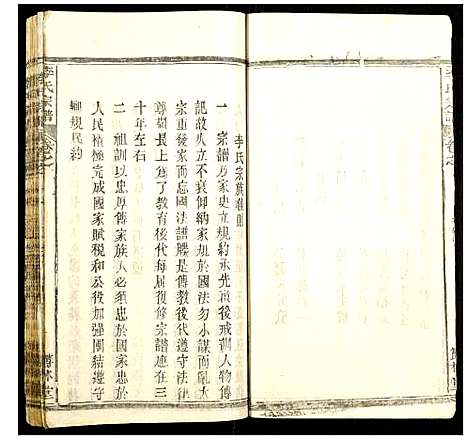 李氏宗譜
李氏宗族准則
一 宗譜乃家史立規約承先啟後戒訓人物傳
記故久立不衰仰納家規於國法勿小謀而亂大
宗重後家而忘國法譜牒是傳教後代遵守法律
尊敬長上為了教育後代每屆復修宗譜應在
十年左右
二 祖訓以忠厚傳家族人必須忠於國家遵守
人民積極完成國家賦稅和公役加強團結遵守
鄉規民約
李氏宗譜
卷之